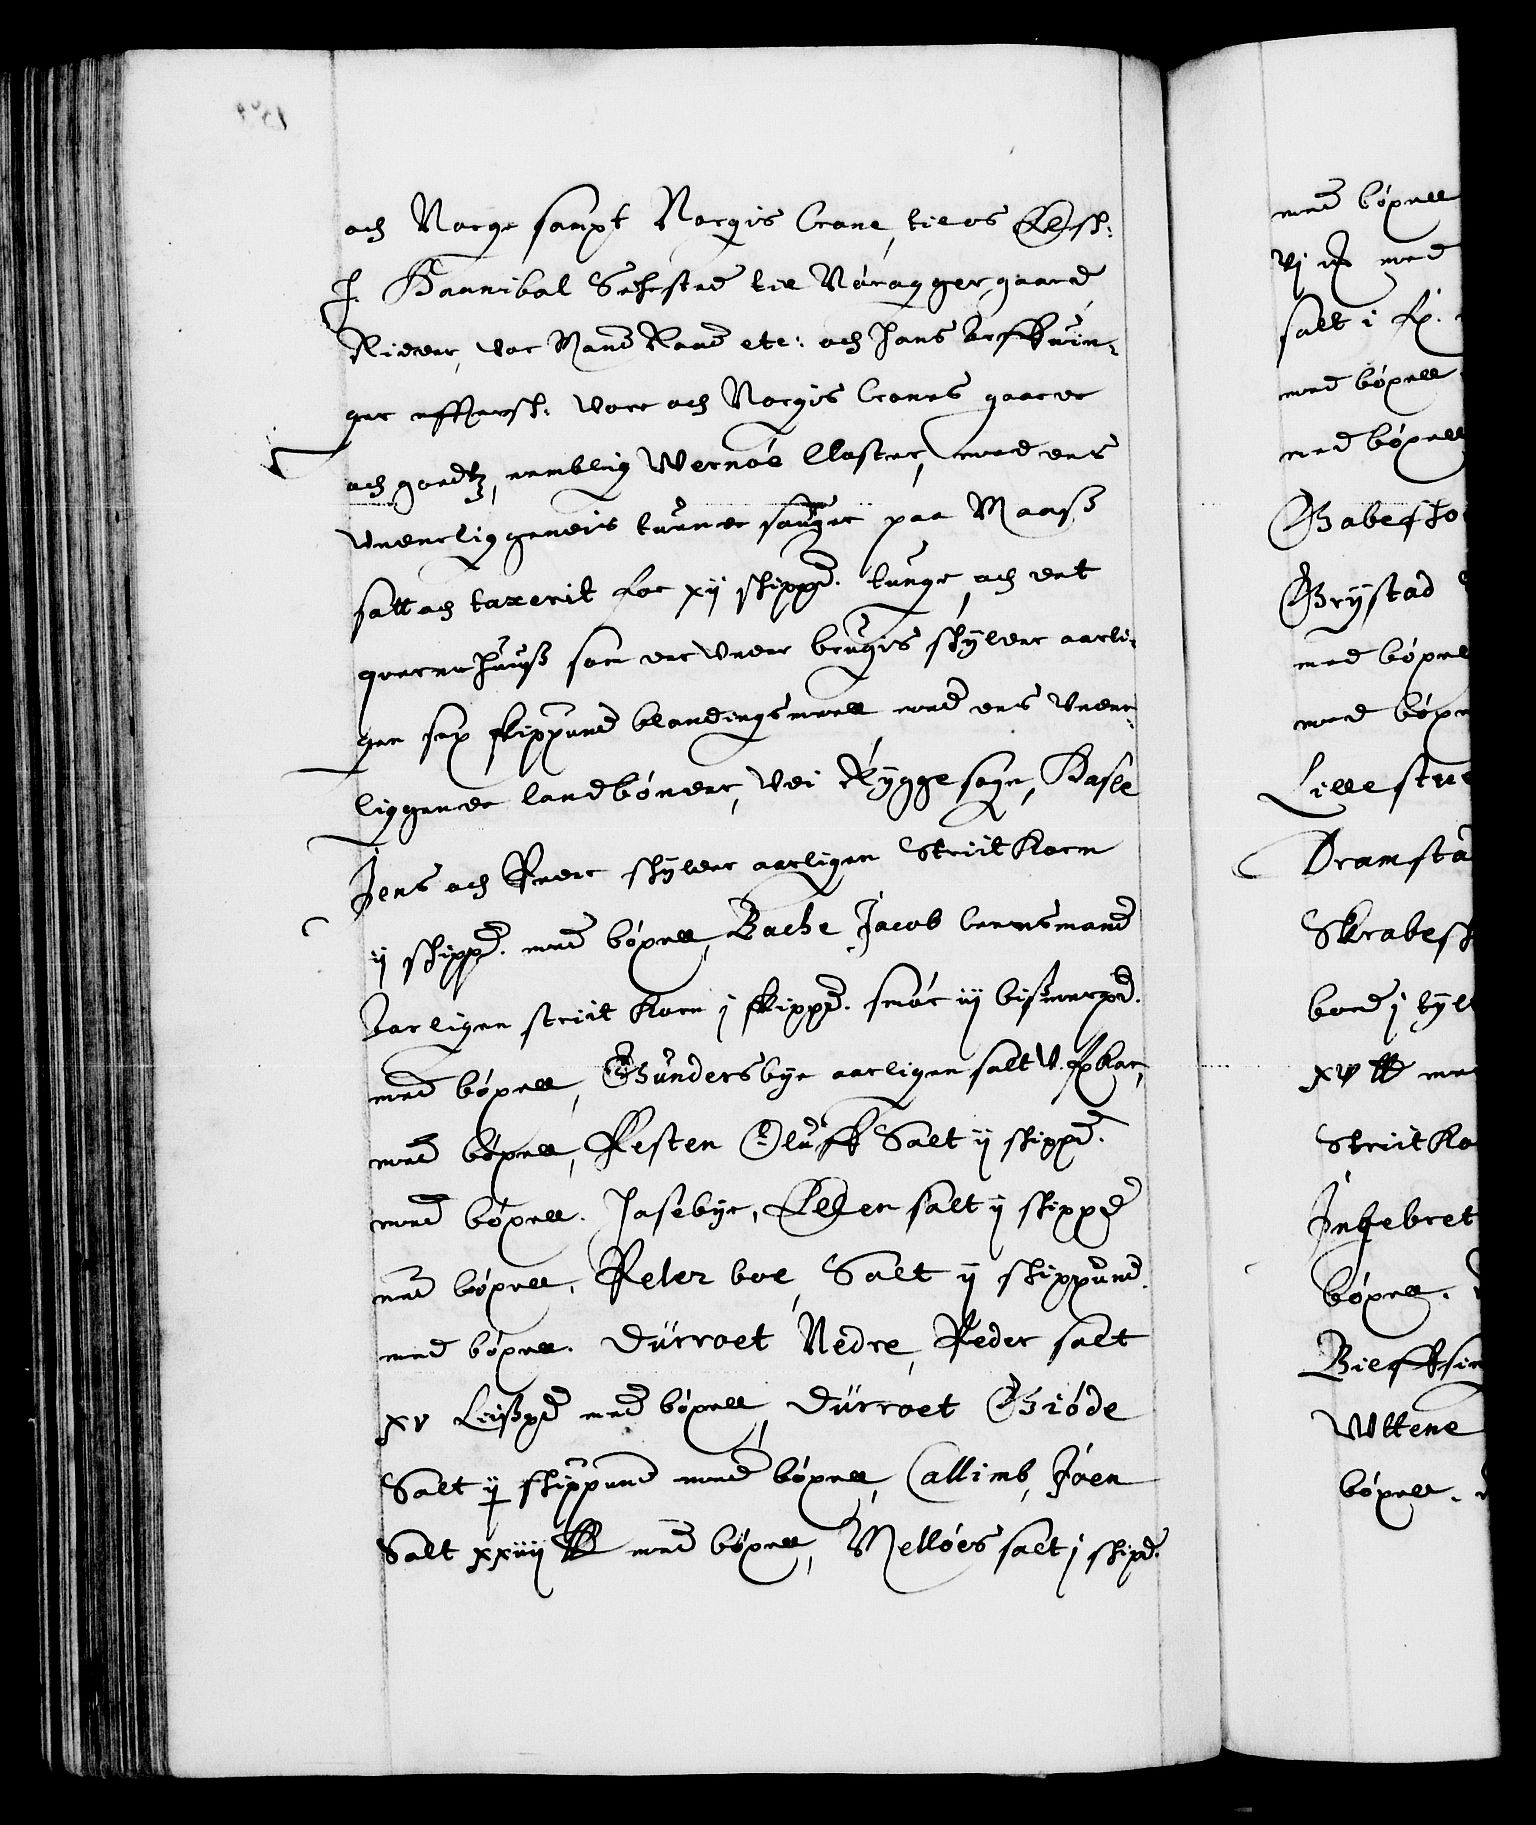 och Norge sampt Norgis Crone, till os Elsk:
H. Hannibal Sehested till Nöragger gaard
Ridder, vor Mand Raad etc: och hans Arffuin-
ger effterskr: Vore och Norgis Crones gaarde
och goedtz, nemblig Wernöe Closter, med dens
Underliggendis tuende sauger paa Maass
satt och taxerit for xij skippd. tunge, och det
quernehuuss som der Under brugis skylder aarli-
gen sex skippund blandingsmeell med dens Under-
liggende landbönder, Ved Rygge sogn, Hasle
Jens och Peder skylder aarligen Striit Korn
ij skippd. med böxell, Bache Jacob Lensmand
Aarligen striit Korn j skippd. smör iij bissmerpd.
med böxell, Gundersbye aarligen salt V. fxkar,
med böxell, Resten Oluff Salt ij skippd.
med böxell. Jasebye, Ellen salt ij skippd
med böxell, Peter boe, Salt ij skippund.
med böxell. Dürroet Nedre, Peder salt
xv Lisspd med böxell, Dürroet Giöde
Salt ij skippund med böxell, Callimb, Joen
Salt xxiiij ℔ med böxell, Mellöes salt j skipd.
med böxell
vj ℔ med
salt i fx.
med böxell
med böxell
Gabesho
Grystad
med böxell
med böx
Lille stue
Dramsta
Skrabesk
boed j tylt
xv ℔ med
Striit Ko
Ingebret
böxell.
Bieffsin
Wttene
böxell.